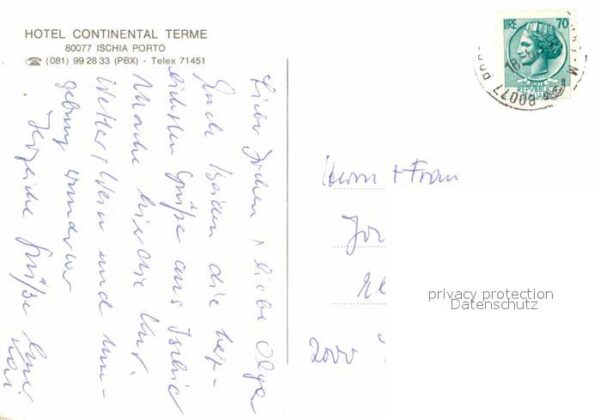 HOTEL CONTINENTAL TERME
80077 ISCHIA PORTO
☎ (081) 99 28 33 (PBX) - Telex 71451
LIRE 70
POSTE
REPUBBLICA
ITALIANA
80077
Lieber Jochen + liebe Olga
Euch Beiden die herz-
lichsten Grüße aus Ischia
Mache hier die Kur.
Wetter, Wein und Um-
gebung wunderbar
Herzliche Grüße Euer
Herrn + Frau
2000
privacy protection
Datenschutz